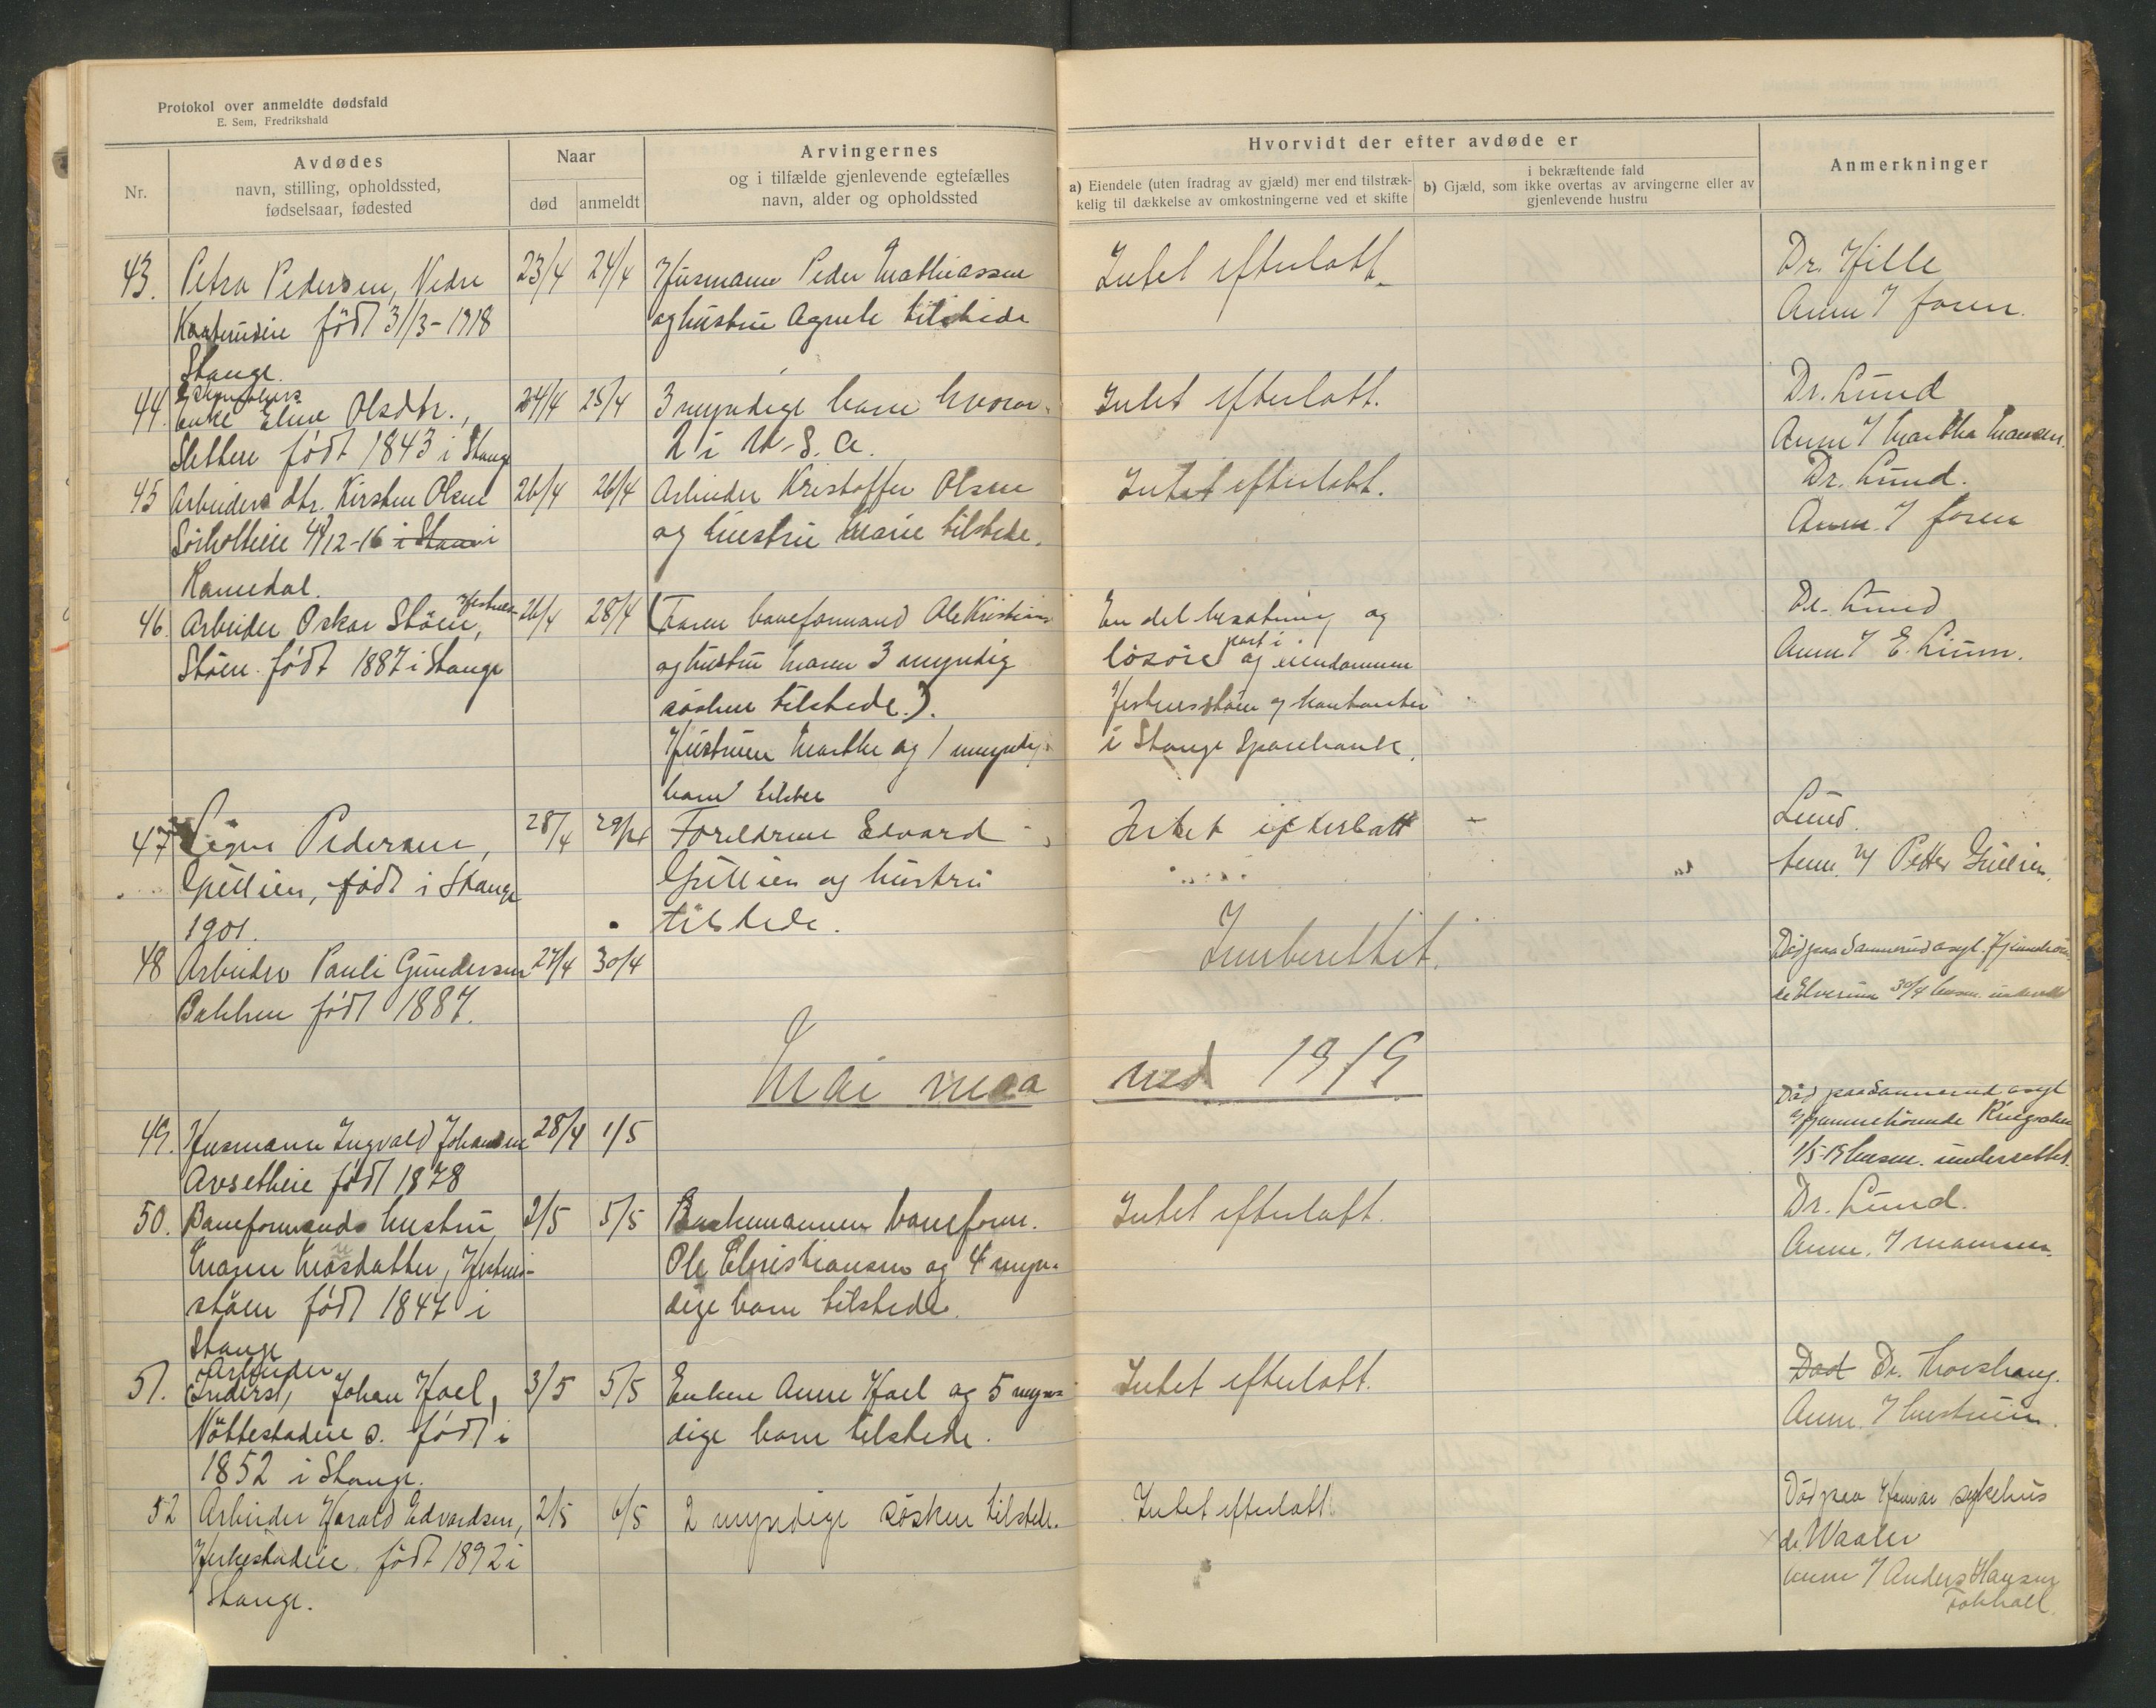 Protokol over anmeldte dødsfald
E. Sem, Fredrikshald
Nr.
Avdødes
navn, stilling, opholdssted,
fødselsaar, fødested
Naar
død
anmeldt
Arvingernes
og i tilfælde gjenlevende egtefælles
navn, alder og opholdssted
Hvorvidt der efter avdøde er
a) Eiendele (uten fradrag av gjæld) mer end tilstræk-
kelig til dækkelse av omkostningerne ved et skifte
i bekræftende fald
b) Gjæld, som ikke overtas av arvingerne eller av
gjenlevende hustru
Anmerkninger
43.
Petra Pedersen, Nedre
født 31/3-1918
Stange.
23/4
24/4
Husmann Peder Mathiassen
og hustru Agnete tilstede
Intet efterlatt.
Dr. Hille
Anm / faren.
44.
enke Eline Olsdtr.,
Slettene født 1843 i Stange
24/4
25/4
3 myndige barn hvorav
2 i U.S.A.
Intet efterlatt.
Dr. Lund
Anm / Martha Hansen.
45
Arbeiders dtr. Kirsten Olsen
4/12-16 i Stange i
Romedal.
26/4
26/4
Arbeider Kristoffer Olsen
og hustru Marie tilstede.
Intet efterlatt.
Dr. Lund.
Anm. / faren
46.
Arbeider Oskar Støen,
Støen født 1887 i Stange
26/4
28/4
(Faren baneformand Ole Kristians
og hustru Maren 3 myndig
søsken tilstede.).
Hustruen Marthe og 1 umyndig
barn tilstede
En del besætning og
part i
løsøre og eiendommen
og kontanter
i Stange Sparebank.
Dr. Lund
Anm / E. Lium.
47
Signe Pedersen,
Gullien, født i Stange
1901.
28/4
29/4
Foreldrene Edvard
Gullien og hustru
tilstede.
Intet efterlatt
Lund.
Anm. / Petter Gullien.
48
Arbeider Pauli Gundersen
Bakken født 1887.
27/4
30/4
Inberettet.
Død paa Sannerud asyl. Hjemhør.
i Elverum 30/4 lensm. underrettet
Mai maaned 1919
49.
Husmann Ingvald Johansen
født 1878
28/4
1/5
Død paa Sannerud asyl
Hjemmehørende Ringsaker
1/5-19 lensm. underrettet.
50.
Baneformands hustru
Maren
støen født 1847 i
Stange
2/5
5/5
Enkemannen baneform.
Ole Christiansen og 4 myn-
dige barn tilstede.
Intet efterlatt.
Dr. Lund.
Anm. / mannen.
51.
Arbeider
(Inderst) Johan Hoel,
født i
1852 i Stange.
3/5
5/5
Enken Anne Hoel og 5 myn-
dige barn tilstede.
Intet efterlatt.
Død Dr.
Anm. / hustruen.
52
Arbeider Harald Edvardsen,
født 1892 i
Stange.
2/5
6/5
2 myndige søsken tilstede.
Intet efterlatt.
Død paa Hamar sykehus
dr. Waaler
Anm / Anders Hansen